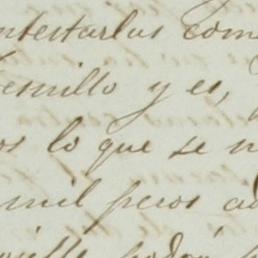 ntestarlas com
esnillo y es,
os lo que se n
mil pesos a